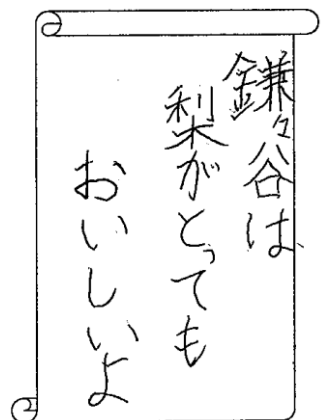 鎌ヶ谷は
梨がとっても
おいしいよ